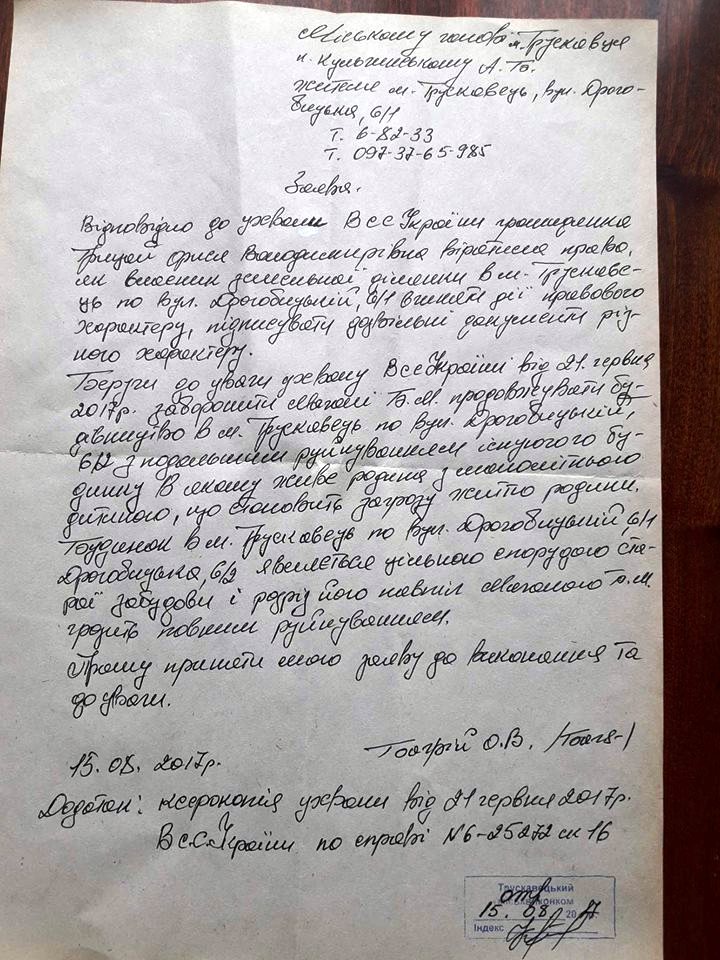 Міському голові м. Трускавця
п. Кульчинському А. Б.
жителя м. Трускавець, вул. Дрого-
бицька, 6/1
т. 6-82-33
т. 097-37-65-985
Заява.
Відповідно до ухвали ВССУкраїни громадянка
Орися Володимирівна втратила право,
як власник земельної ділянки в м. Трускаве-
ць по вул. Дрогобицькій, 6/1 вчиняти дії правового
характеру, підписувати дозвільні документи різ-
ного характеру.
Беручи до уваги ухвалу ВССУкраїни від 21 червня
2017р. заборонити Б.М. продовжувати бу-
дівництво в м. Трускавець по вул. Дрогобицькій,
6/2 з подальшим руйнуванням існуючого бу-
динку в якому живе родина з малолітньою
дитиною, що становить загрозу життю родини.
Будинок в м. Трускавець по вул. Дрогобицькій, 6/1
Дрогобицька, 6/2 являється цільною спорудою ста-
рої забудови і розріз його навпіл
грозить повним руйнуванням.
Прошу прийняти мою заяву до виконання та
до уваги.
15.08.2017р.
О.В.
Додаток: ксерокопія ухвали від 21 червня 2017р.
ВССУкраїни по справі №6-25272 ск 16
Трускавецький
міськвиконком
15. 08 2017
Індекс